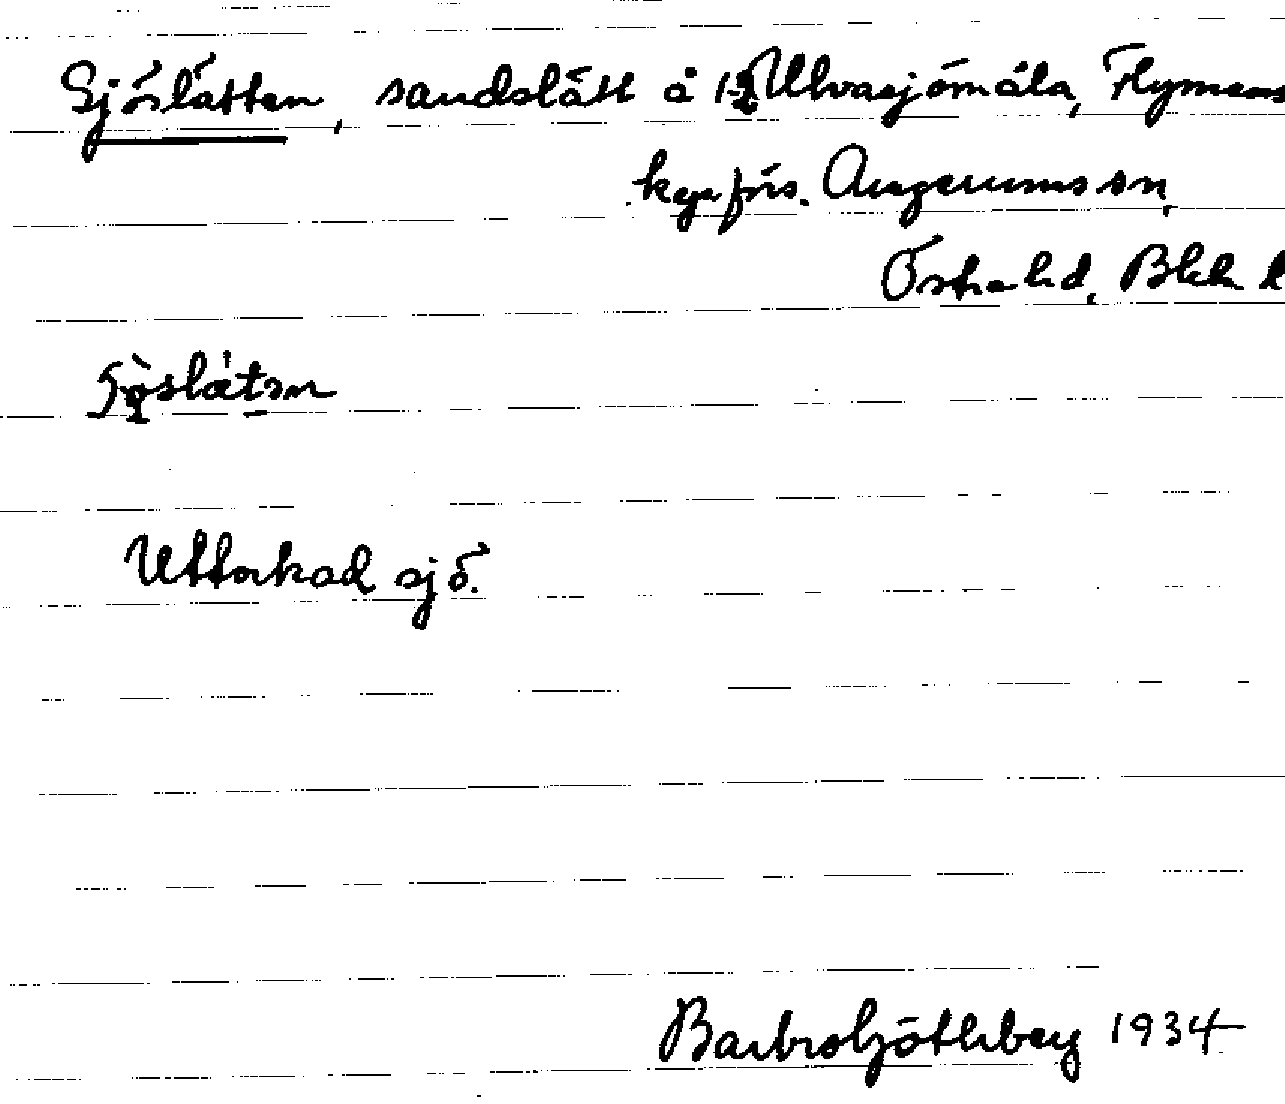 Sjöslätten, sandslätt å 1-2 Ulvasjömåla, Flymens
kga förs. Augerums sn,
Östra hd, Blek l
sjö̀slä́tən
Uttorkad sjö.
Barbro Götlberg 1934